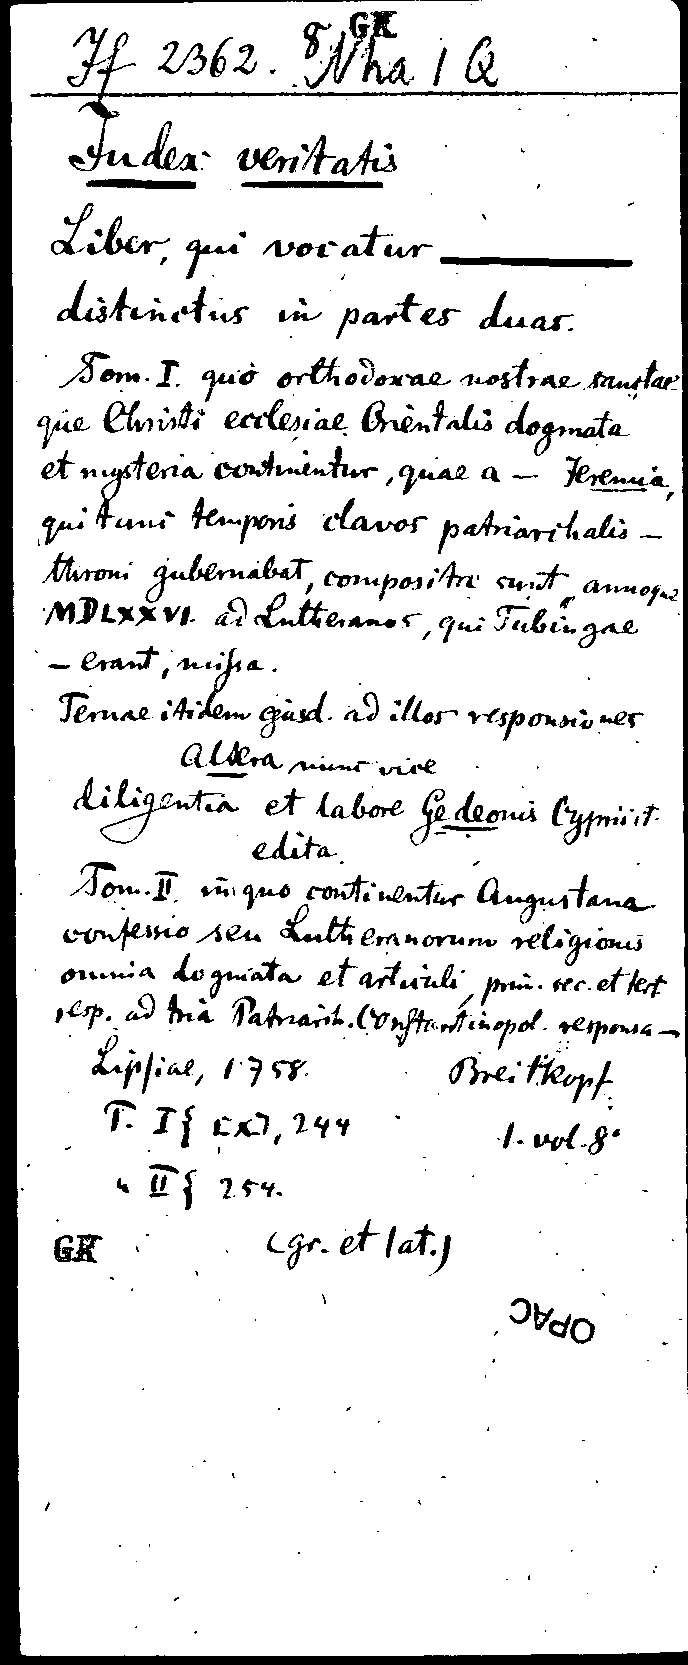 GK
If 2362. 8 Nha 1 Q
Judex veritatis
Liber, qui vocatur
distinctus in partes duas.
Tom. I. quo orthodoxae nostrae sanctae
que Christi ecclesiae Orientalis dogmata
et mysteria continentur, quae a — Jeremia,
qui tunc temporis clavos patriarchalis —
throni gubernabat, composita sunt, annoque
MDLXXVI. ad Lutheranos, qui Tubingae
— erant, missa.
Ternae itidem ejusd. ad illos responsiones
Altera nunc vice
diligentia et labore Gedeonis Cyprii it.
edita.
Tom. II. in quo continentur Augustana
confessio seu Lutheranorum religionis
omnia dogmata et articuli, prim. sec. et tert
resp. ad tria Patriarch. Constantinopol. responsa —
Lipsiae, 1758. Breitkopf.
T. I { [X], 244 1. vol. 8°
" II { 254.
GK (gr. et lat.)
OPAC